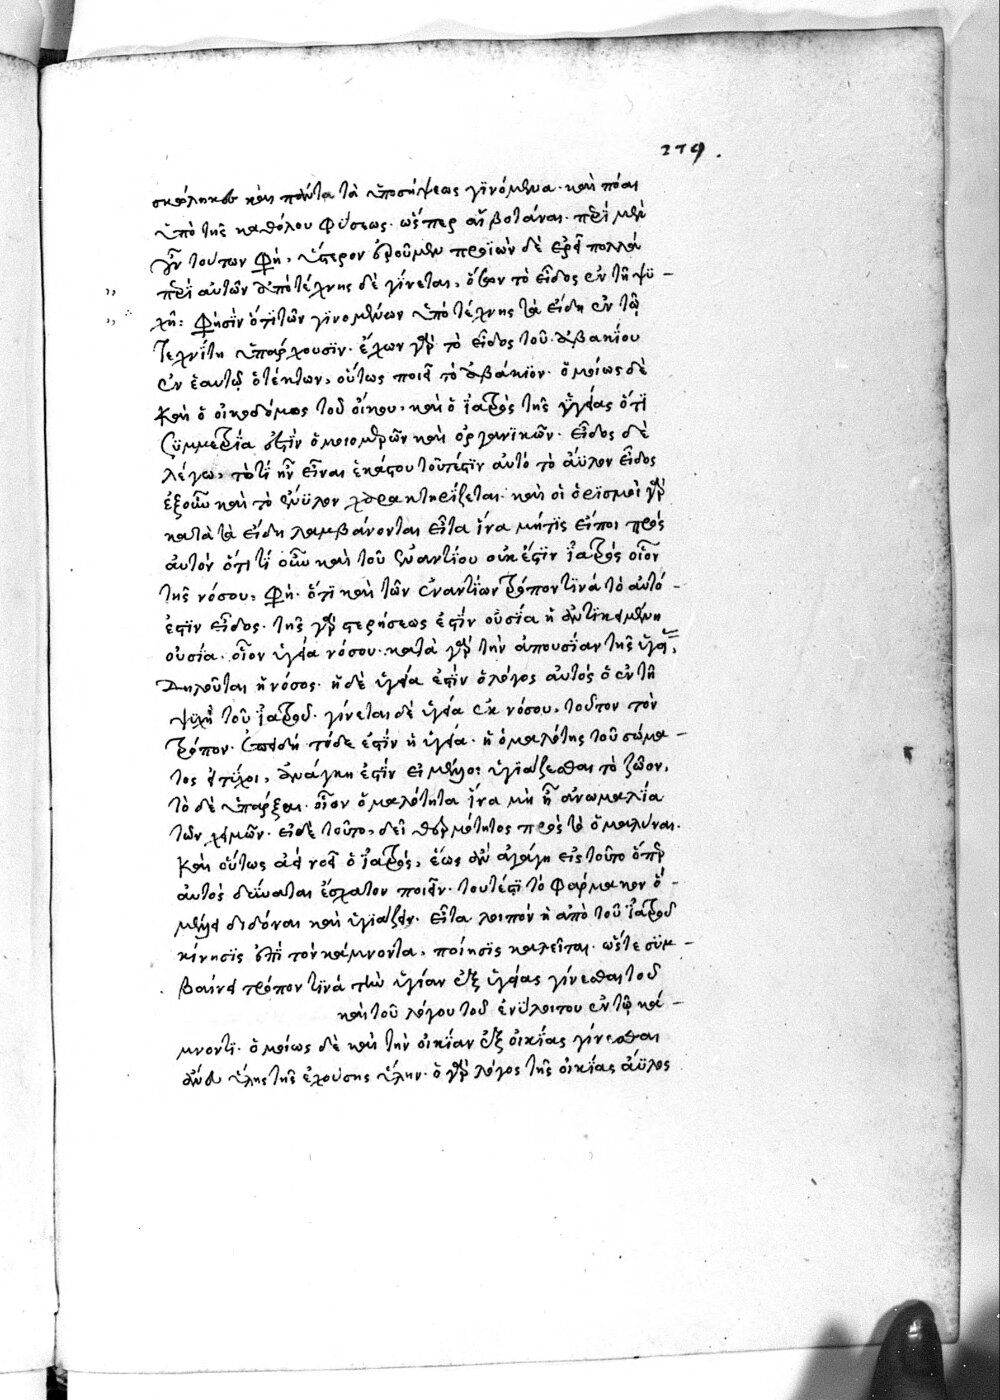 279.
σκώληκες καὶ πάντα τὰ ἀποσήψεως γϊνόμενα· καὶ πόαι
ὑπὸ τῆς καθόλου φύσεως· ὥσπερ αἱ βοτάναι· περὶ μὲν
οὖν τούτων φη, ὕστερον ἐροῦμεν προϊὼν δὲ ἐρεῖ πολλὰ
περὶ αὐτῶν ἀπὸ τέχνης δὲ γίνεται, ὅσων τὸ εἶδος ἐν τῇ ψυ -
χῇ: φησὶν ὅτι τῶν γϊνομένων ὑπὸ τέχνης τὰ εἴδη ἐν τῷ
τεχνίτῃ ὑπάρχουσϊν· ἔχων γὰρ τὸ εἶδος τοῦ ἀβακίου
ἐν ἑαυτῷ ὁ τέκτων, οὕτως ποιεῖ τὸ ἀβάκϊον· ὁμοίως δὲ
καὶ ὁ οἰκοδόμος τοῦ οἴκου, καὶ ὁ ἰατρὸς τῆς ὑγείας ὅτϊ
συμμετρία ἐστὶν ὁμοιομερῶν καὶ ὀργανϊκῶν· εἶδος δὲ
λέγω, τὸ τί ἦν εἶναι ἑκάστου τουτέστϊν αὐτὸ τὸ ἄϋλον εἶδος
ἐξ οὗ καὶ τὸ ἔνϋλον χαρακτηρίζεται· καὶ οἱ ὁρϊσμοὶ γὰρ
κατὰ τὰ εἴδη λαμβάνονται εἶτα ἵνα μήτϊς εἴποι πρὸς
αὐτὸν ὅτι τί οὖν καὶ τοῦ ἐναντίου οὐκ ἔστϊν ἰατρὸς οἷον
τῆς νόσου, φη· ὅτϊ καὶ τῶν ἐναντίων τρόπον τϊνὰ τὸ αὐτό -
ἐστϊν εἶδος· τῆς γὰρ στερήσεως ἐστὶν οὐσία ἡ ἀντϊκειμένη
οὐσία· οἷον ὑγεία νόσου· κατὰ γὰρ τὴν ἀπουσίαν τῆς ὑγεί=
δηλοῦται ἡ νόσος· ἡ δὲ ὑγεία ἐστὶν ὁ λόγος αὐτὸς ὁ ἐν τῇ
ψϋχῇ τοῦ ἰατροῦ· γίνεται δὲ ὑγεία ἐκ νόσου, τοῦτον τὸν
τρόπον· ἐπειδὴ τόδε ἐστὶν ἡ ὑγεία· ἡ ὁμαλότης τοῦ σώμα -
τος εἰ τύχοι, ἀνάγκη ἐστὶν εἰ μέλλοι ὑγϊάζεσθαι τὸ ζῶον,
τὸ δὲ ὑπάρξαι· οἷον ὁμαλότητα ἵνα μὴ ᾖ ἀνωμαλία
τῶν χυμῶν· εἰ δὲ τοῦτο, δεῖ θερμότητος πρὸς τὸ ὁμαλῦναι·
καὶ οὕτως ἀεὶ νοεῖ ὁ ἰατρὸς, ἕως ἂν ἀγάγῃ εἰς τοῦτο ὅπερ
αὐτὸς δύναται ἔσχατον ποιεῖν· τουτέστϊ τὸ φάρμακον ὃ -
μέλλει διδόναι καὶ ὑγϊάζειν· εἶτα λοιπὸν ἡ ἀπὸ τοῦ ἰατροῦ
κίνησϊς ἐπὶ τὸν κάμνοντα, ποίησϊς καλεῖται· ὥστε συμ -
βαίνει τρόπον τϊνὰ τὴν ὑγίαν ἐξ ὑγείας γίνεσθαι τοῦ
καὶ τοῦ λόγου τοῦ ἐνύλου τοῦ ἐν τῷ κά -
μνοντϊ· ὁμοίως δὲ καὶ τὴν οἰκίαν ἐξ οἰκίας γίνεσθαι
ἄνευ ὕλης τῆς ἐχούσης ὕλην· ὁ γὰρ λόγος τῆς οἰκίας ἄϋλος